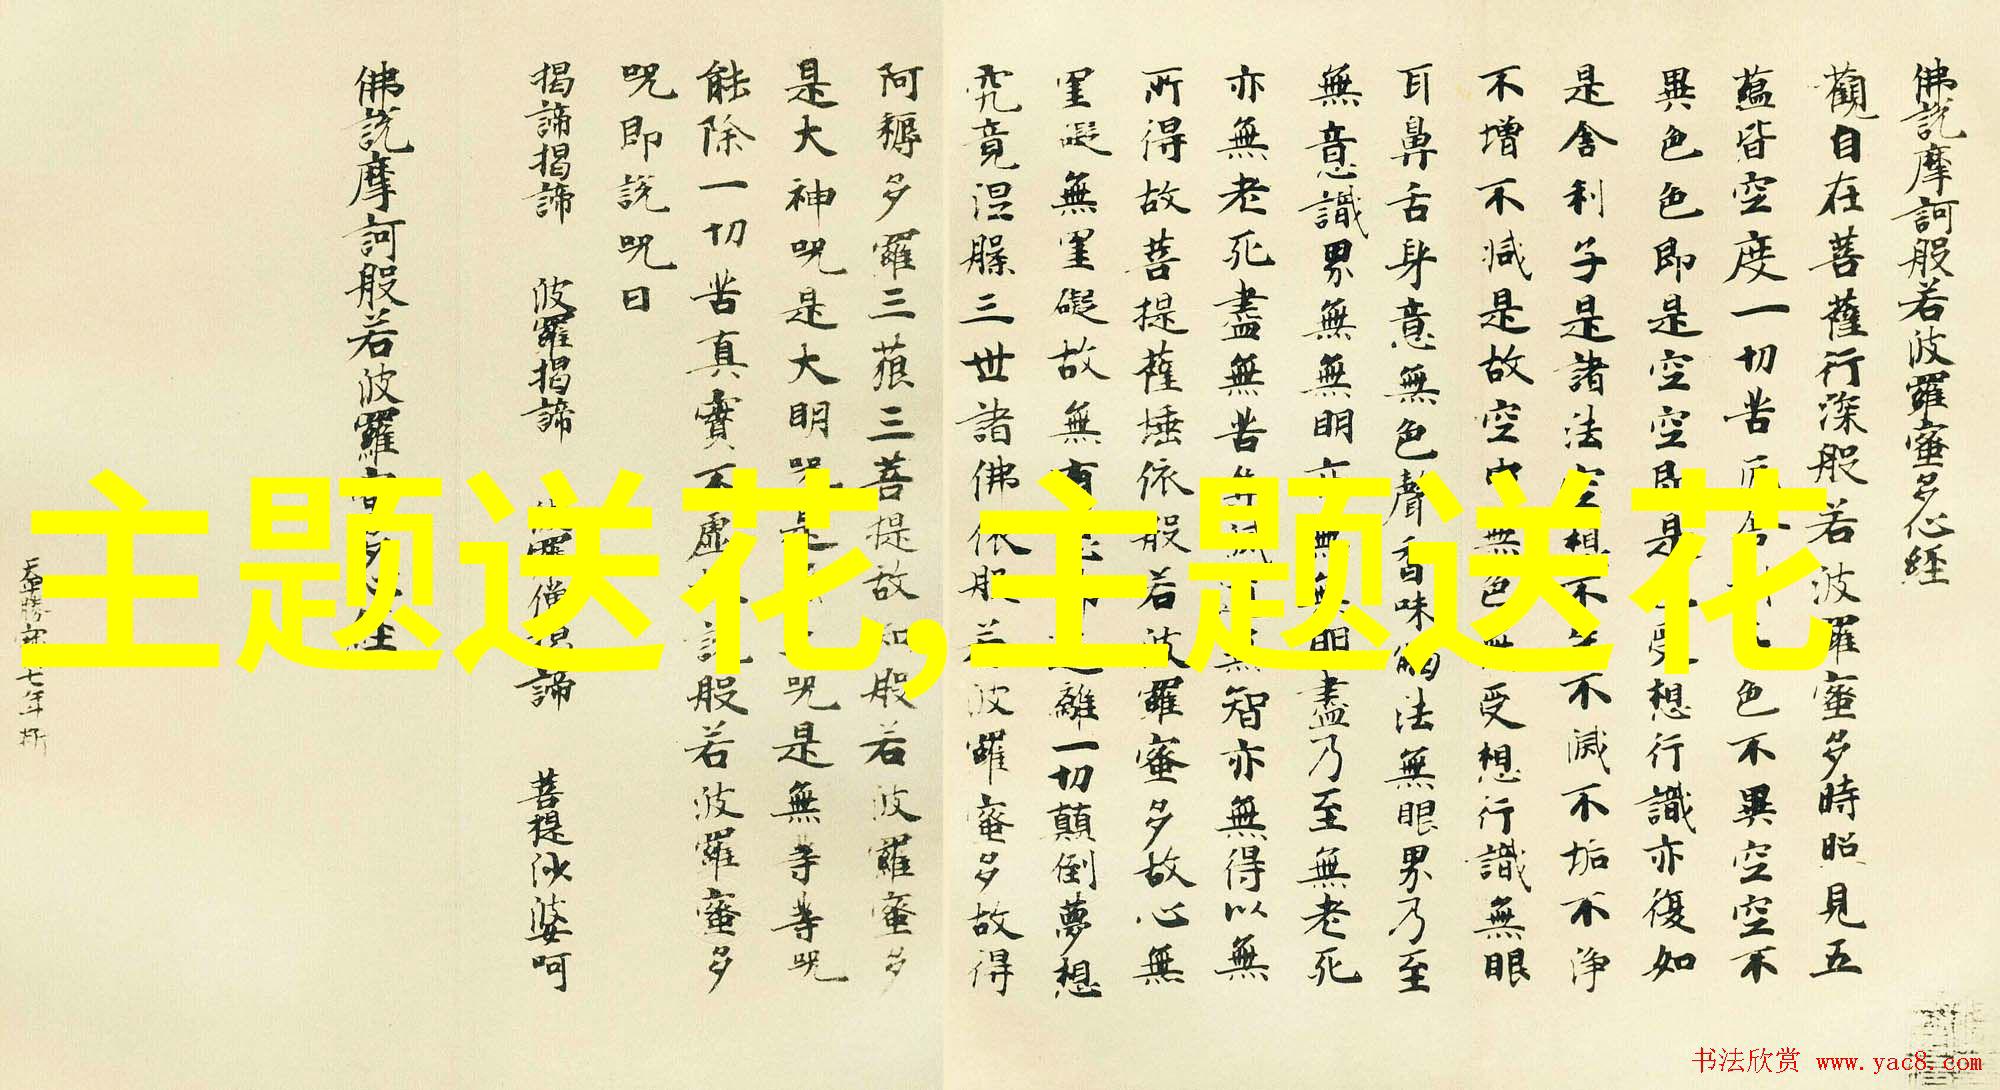 佛説摩訶般若波羅蜜多心經
觀自在菩薩行深般若波羅蜜多時照見五
蘊皆空度一切苦厄色不異空空不
異色色即是空空即是受想行識亦復如
是舍利子是諸法空想不生不滅不垢不淨
不增不減是故空中無色無受想行識無眼
耳鼻舌身意無色聲香味觸法無眼界乃至
無意識界無無明亦無無明盡乃至無老死
亦無老死盡無苦集滅無智亦無得以無
所得故菩提薩埵依般若波羅蜜多故心無
罣礙無罣礙故無有離一切顛倒夢想
究竟涅槃三世諸佛依般若波羅蜜多故得
阿耨多羅三藐三菩提故知般若波羅蜜多
是大神咒是大明咒是咒是無等等咒
能除一切苦真實不虛説般若波羅蜜多
咒即説咒曰
揭諦揭諦 波羅揭諦 波羅僧揭諦 菩提沙婆呵
佛説摩訶般若波羅蜜多心經
七年
主题送花,主题送花
书法欣赏 www.yac8.com